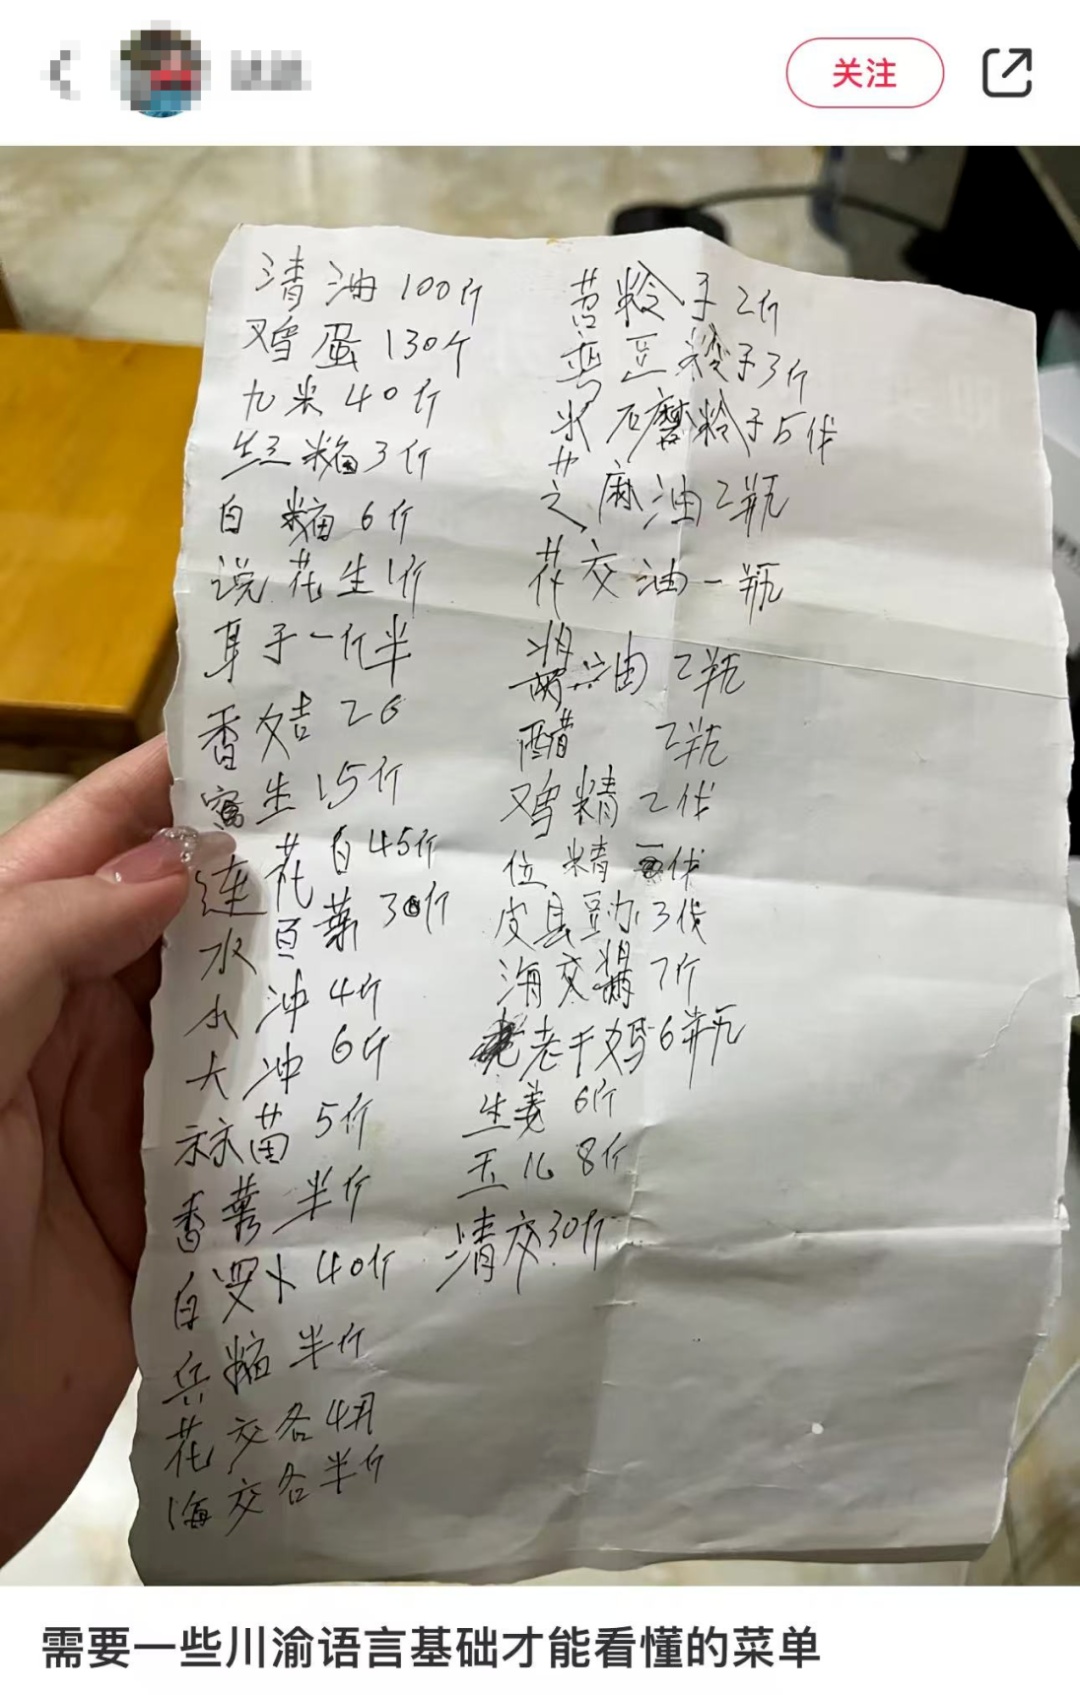 关注
清油100斤
鸡蛋130个
九米40斤
红糖3斤
白糖6斤
说花生1斤
耳子一斤半
香姞26
生15斤
连花白45斤
水百菜30斤
水冲4斤
大冲6斤
蒜苗5斤
香菜半斤
白罗卜40斤
兵糖半斤
花交各4两
海交各半斤
苕粉子2斤
弯豆粉子3斤
水石磨粉子5代
芝麻油2瓶
花交油一瓶
酱油2瓶
醋 2瓶
鸡精2代
位精 代
皮县豆办3代
海交酱7斤
老干妈6瓶
生姜6斤
玉儿8斤
清交30斤
需要一些川渝语言基础才能看懂的菜单